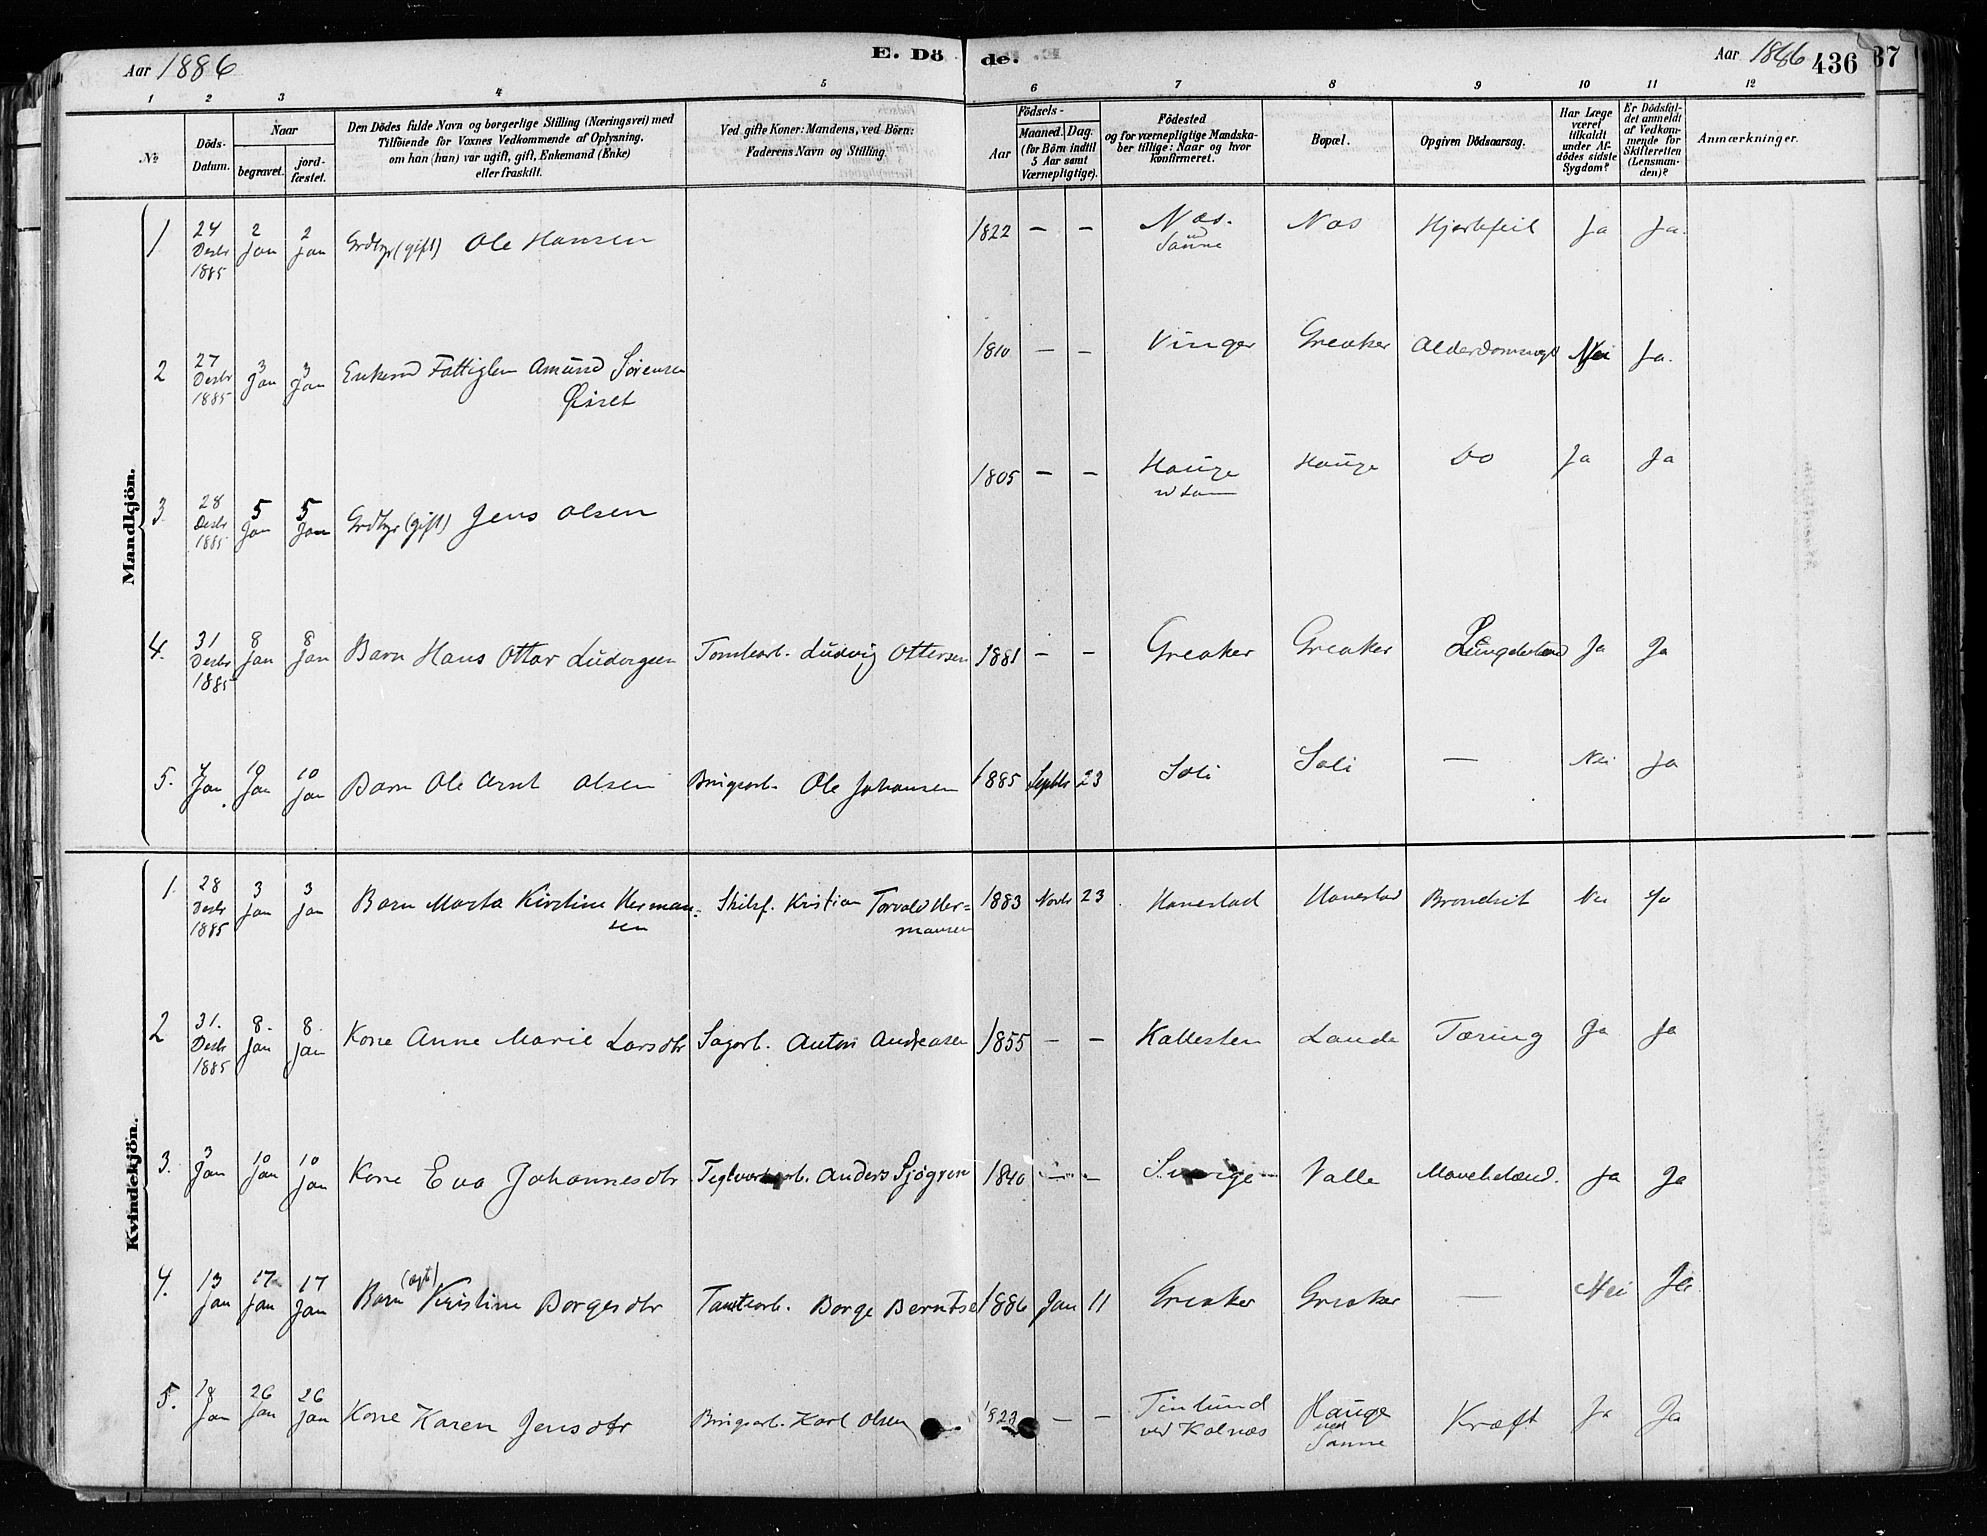 Aar 1886
E. Döde.
Aar 1886
436
37
1 2 3 4 5 6 7 8 9 10 11 12
No
Döds-Datum.
Naar
begravet.
jord-fæstet.
Den Dödes fulde Navn og borgerlige Stilling (Næringsvei) med
Tilföiende for Voxnes Vedkommende af Oplysning.
om han (hun) var ugift, gift, Enkemand (Enke)
eller fraskilt.
Ved gifte Koner: Mandens, ved Börn:
Faderens Navn og Stilling
Födsels-
Aar
Maaned. Dag.
(for Börn indtil
5 Aar samt
Værnepligtige).
Födested
og for værnepligtige Mandska-
ber tillige: Naar og hvor
konfirmeret.
Bopæl.
Opgiven Dödsaarsag.
Har Læge
været
tilkaldt
under Af-
dödes sidste
Sygdom?
Er Dödsfal-
det anmeldt
af Vedkom-
mende for
Skifteretten
(Lensman-
den)?
Anmærkninger.
Mandkjön.
1 24 Desbr 1885 2 Jan 2 Jan Grdbgr (gift) Ole Hansen 1822 — — Næs. Næs Hjertefeil Ja Ja.
Sanne
2 27 Desbr 1885 3 Jan 3 Jan Enkemd Fattiglem Amund Sörensen 1810 — — Vinger Greaker Nei Ja.
3 28 Desbr 1885 5 Jan 5 Jan Grdbgr (gift) Jens Olsen 1805 — — Hauge Hauge Do Ja Ja
4. 31 Desbr 1885 8 Jan 8 Jan Barn Hans Ottar Ludvigsen Tomtearb. Ludvig Ottersen 1881 — — Greaker Greaker Ja Ja
5. 4 Jan 10 Jan 10 Jan Barn Ole Arnt Olsen Brugsarb. Ole Johansen 1885 Septbr 23 Soli Soli — Nei Ja
Kvindekjön.
1. 28 Desbr 1885 3 Jan 3 Jan Barn Marta Kirstine Herman= Kristian Torvald Her= 1883 Novbr 23 Hanestad Hanestad Nei Ja
sen mansen
2 31. Desbr 1885 8. Jan 8. Jan Kone Anne Marie Larsdtr Sagarb. Anton Andreasen 1855 — — Kallesten Lande Tæring Ja Ja
3. 3 Jan 10 Jan 10 Jan Kone Eva Johannesdtr Teglværksarb. Anders Sjögren 1840 — — Sverige Valle Ja Ja
4. 13 Jan 17 Jan 17 Jan Barn Kristine Borgesdtr Tomtearb. Borge Berntse 1886 Jan 11 Greaker Greaker — Nei Ja.
5. 18 Jan 26 Jan 26 Jan Kone Karen Jensdtr Brugsarb. Karl Olsen 1823 — — Tinlund Hauge Kræft Ja Ja
ved Kalnæs ved Sanne